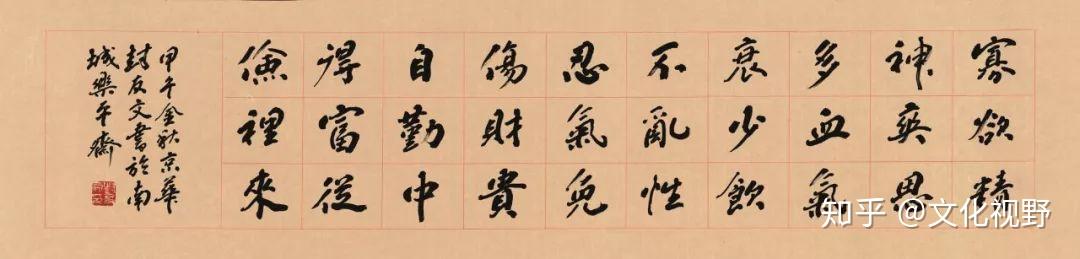 寡欲精
神爽思
多血氣
衰少飲
不亂性
忍氣免
傷財貴
自勤中
得富從
儉裡來
甲午金秋京華
封友文書於南
城樂平齋
知乎 @文化视野